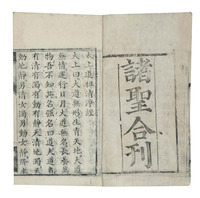 諸聖合刊
太上
太上曰大道無形生育天地大道
無情運行日月大道無名長養萬
物吾不知其名強名曰道夫道者
有清有濁有動有靜天清地濁天
動地靜男清女濁男動女靜降